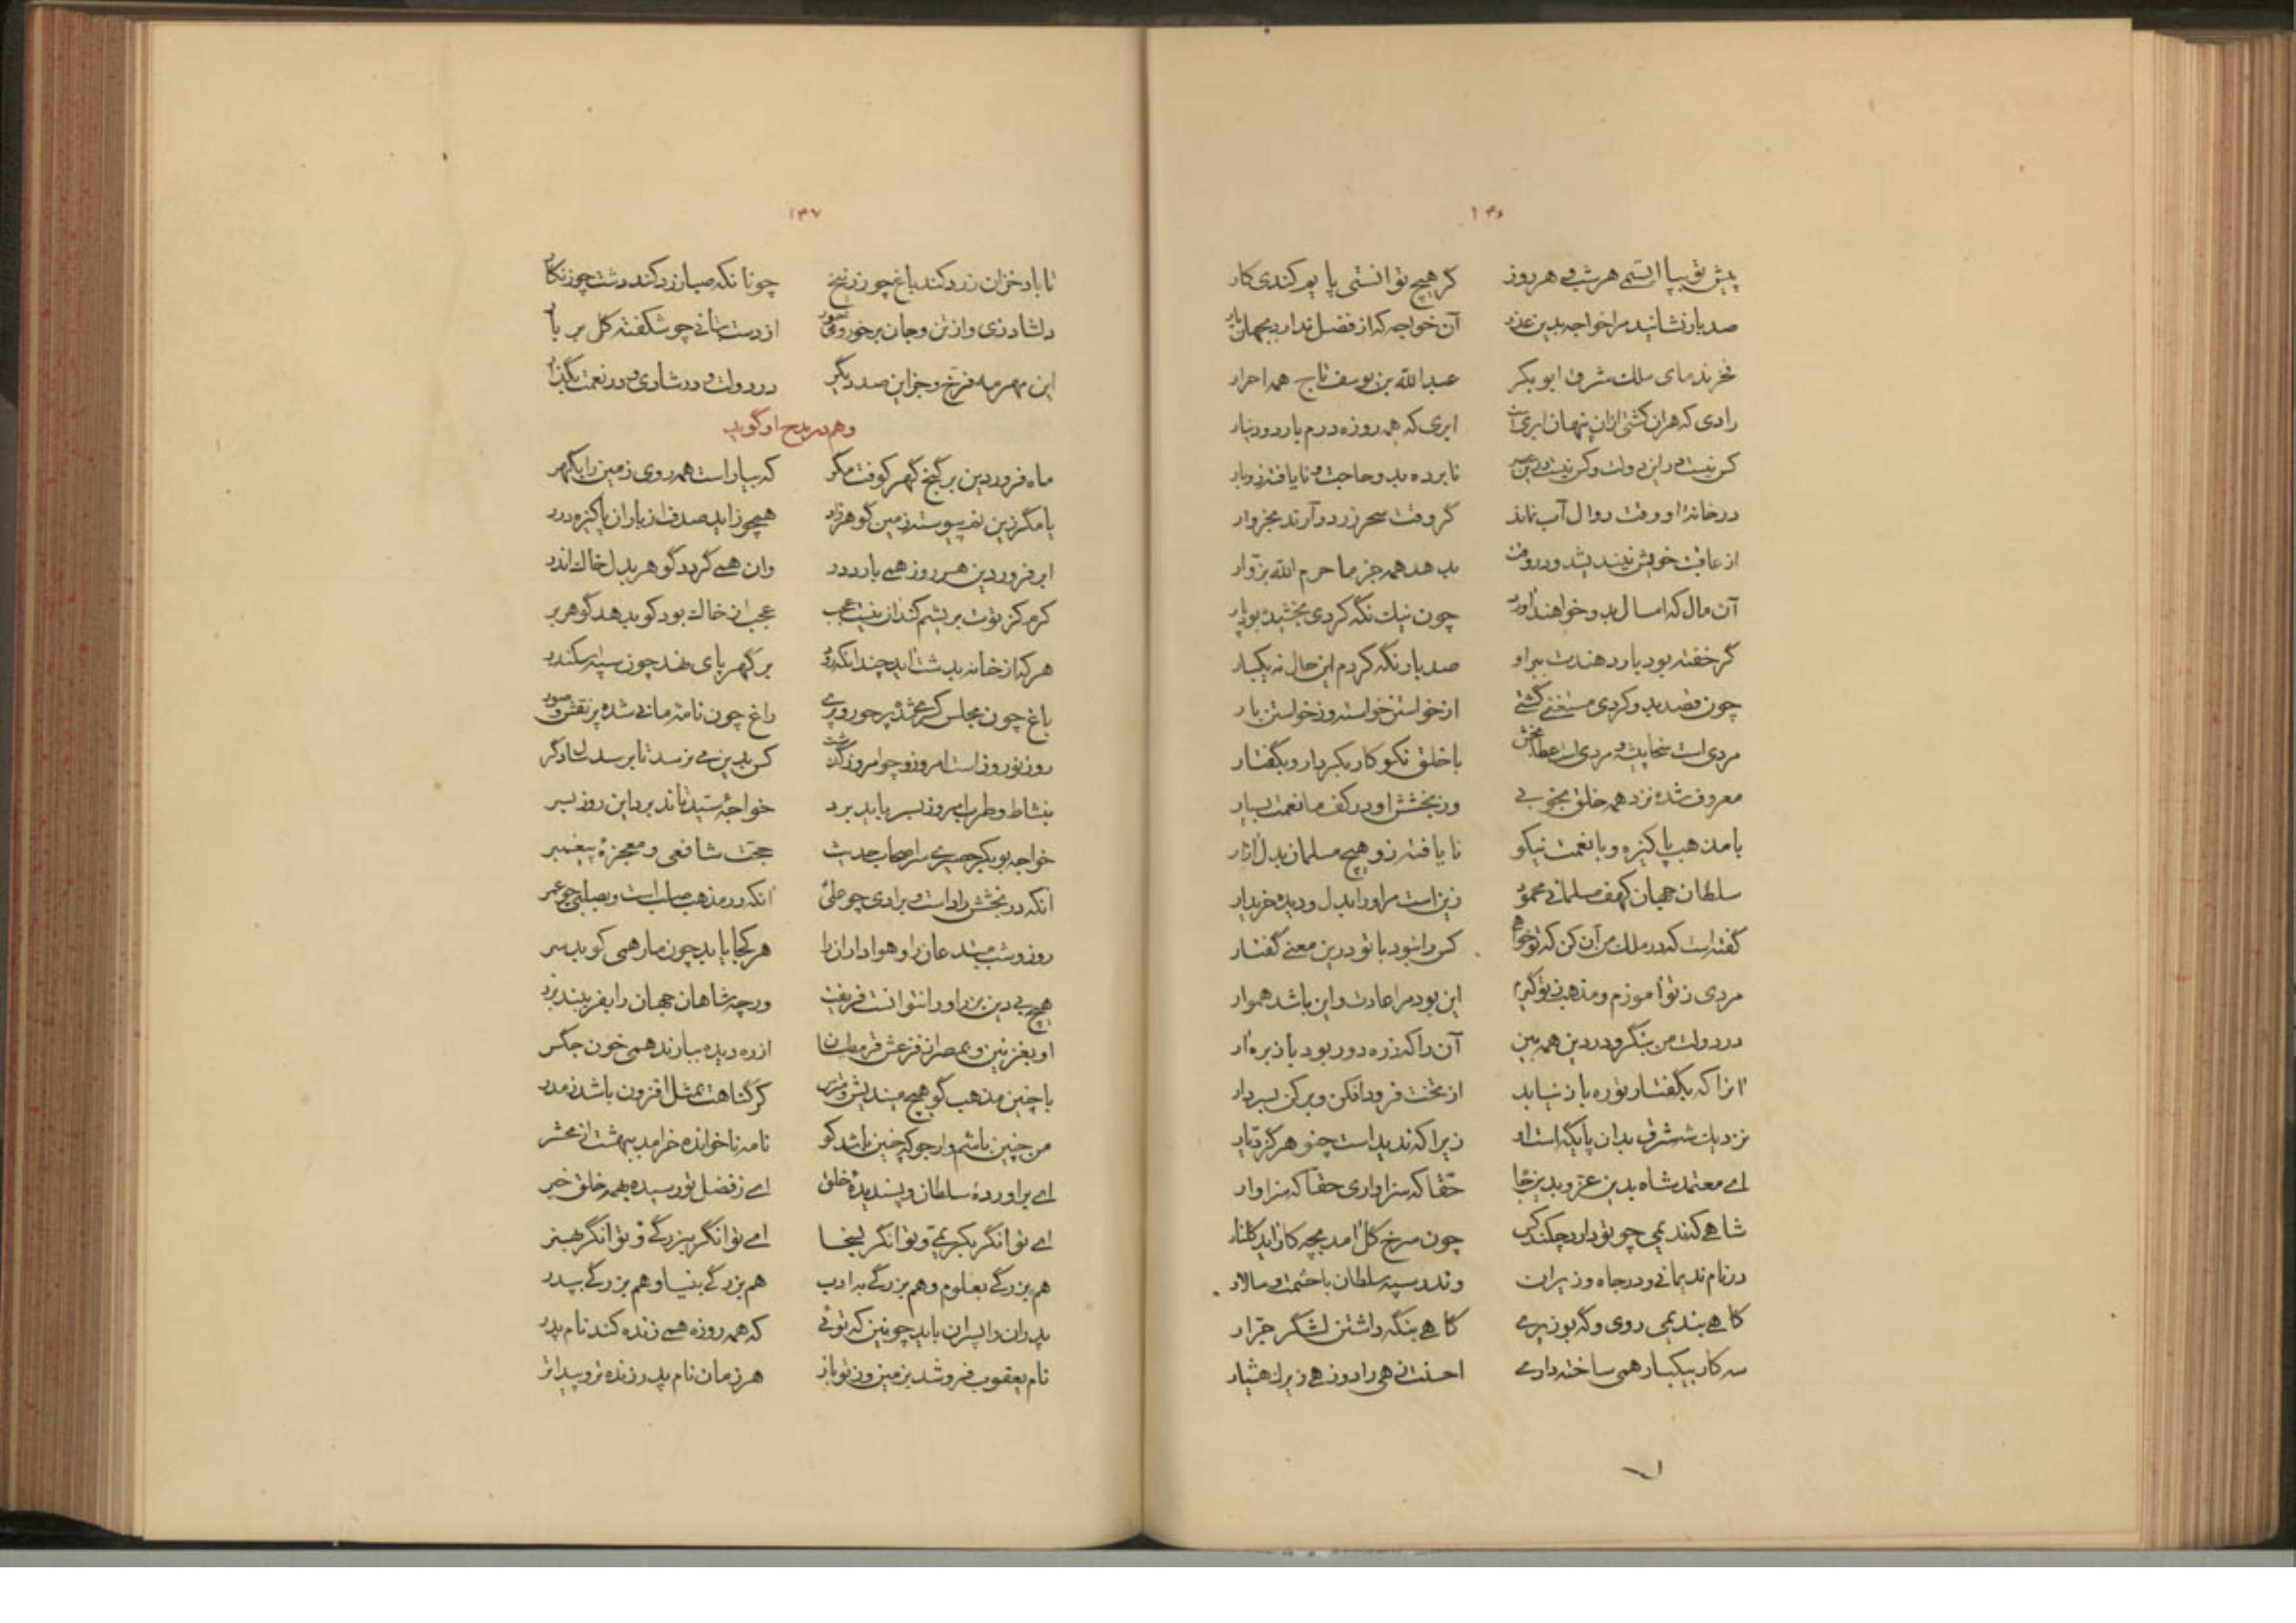 ۱۳۶
پیش تو بپا ایستمی هر شب و هر روز گر هیچ توانستی پایم کندی کار
صد بار نشانید مرا خواجه بدین عذر آن خواجه که از فضل ندارد بجهان یار
فخر ندمای ملک مشرق ابو بکر عبدالله بن یوسف تاج همه احرار
رادی که هران کشتی ازان پنهان ابری که همه روزه درم بارد و دینار
نابرده بدو حاجت و نایافته زو بار
در خانه او وقت زوال آب نماند گر وقت سحر زر درآرند بخروار
از عاقبت خویش نیندیشد و در وقت بدهد همه جز ما حرم الله بزوار
آن مال که امسال بدو خواهند آورد چون نیک نگه کردی بخشیده بود پار
گر خفته بود بار دهندت ببر او صد بار نگه کردم این حال نه یکبار
چون قصد بدو کردی مستغنی گشتی از خواستن خواسته وز خواستن بار
مردی است سخاپیشه و مردی است عطابخش با خلق نکو کار بکردار و بگفتار
معروف شده نزد همه خلق بخوبی وز بخشش او در کف ما نعمت بسیار
با مذهب پاکیزه و با نعمت نیکو نایافته زو هیچ مسلمان بدل آزار
سلطان جهان کهف مسلمانی محمود زین است مر او را بدل و دیده خریدار
گفته است که در ملک من آن کن که تو خواهی کس را نبود با تو درین معنی گفتار
مردی ز تو آموزم و مذهب ز تو گیرم این بود مرا عادت و این باشد هموار
در دولت من بنگر و در دین همه بین آن را که ز ره دور بود باز بره آر
انرا که بگفتار تو ره باز نیابد از تخت فرود افکن و بر کن بسر دار
نزدیک شه شرق بدان پایگه است او زیرا که ندیداست چنو هرگز دیار
ای معتمد شاه بدین عز و بدین جا حقا که سزاواری حقا که سزاوار
شاهی که ندیمی چو تو دارد چکند کس چون سرخ گل آمد بچه کار آید گلنار
در نام ندیمانی و در جاه وزیران وندر سپه سلطان با حشمت و سالار
گاهی بندیمی روی و گه بوزیری گاهی بنگه داشتن لشگر جرار
سه کار بیکبار همی ساخته داری احسنت زهی راد و زهی زیرک هشیار
۱۳۷
تا باد خزان زرد کند باغ چو زرنیخ چونانکه صبا زرد کند دشت چو زنگار
دلشاد زی و از تن و جان برخور و می خور از دست بتانی چو شکفته گل بر بار
این مهر مه فرخ و جز این صد دیگر در دولت و در شادی و در نعمت بگذار
وهم در مدح او گوید
ماه فروردین بر گنج گهر کوفت مگر که بیاراست همه روی زمین را بگهر
یا مگر زین نم پیوسته زمین گوهر زاد همچو زاید صدف از باران پاکیزه درر
ابر فروردین هر روز همی بارد در وان همی گردد گوهر بدل خاک اندر
کرم کز توت بریشم کند آن نیست عجب عجب از خاک بود کو بدهد گوهر بر
هر که از خانه بدشت اید چندانکه رود بر گهر پای نهد چون سپه اسکندر
باغ چون مجلس کسری شده پر حور و پری راغ چون نامه مانی شده پر نقش و صور
روز نوروز است امروز و چو امروز گذشت کس بدین می نرسد تا برسد سال دگر
بنشاط و طرب امروز بسر باید برد خواجه سید تا ند برد این روز بسر
خواجه بو بکر حصیری سر اصحاب حدیث حجت شافعی و معجزه پیغمبر
انکه در بخشش راد است و برادی چو علی انکه در مذهب صلب است و بصلبی چو عمر
روز و شب مبتدعان را و هواداران را هر کجا یابد چون مار همی کوبد سر
هیچ بی دین بزر او را نتوانست فریفت ورچه شاهان جهان را بفریبند بزر
او بغزنین و بمصر از فزعش قرمطیان از ره دیده ببارند همی خون جگر
با چنین مذهب گو هیچ میندیش و مترس گر گناهت بمثل افزون باشد ز مدر
من چنین باشم و ارجو که چنین باشد کو نامه ناخوانده خرامد ببهشت از محشر
ای براورده سلطان و پسندیده خلق ای ز فضل تو رسیده بهمه خلق خبر
ای توانگر بکریمی و توانگر بسخا ای توانگر ببزرگی و توانگر بهنر
هم بزرگی بعلوم و هم بزرگی به ادب هم بزرگی بنیا و هم بزرگی بپدر
پدران را پسران باید چونین که توئی که همه روزه همی زنده کند نام پدر
نام یعقوب فروشد بزمین وز تو باز هر زمان نام پدر زنده تر و پیداتر